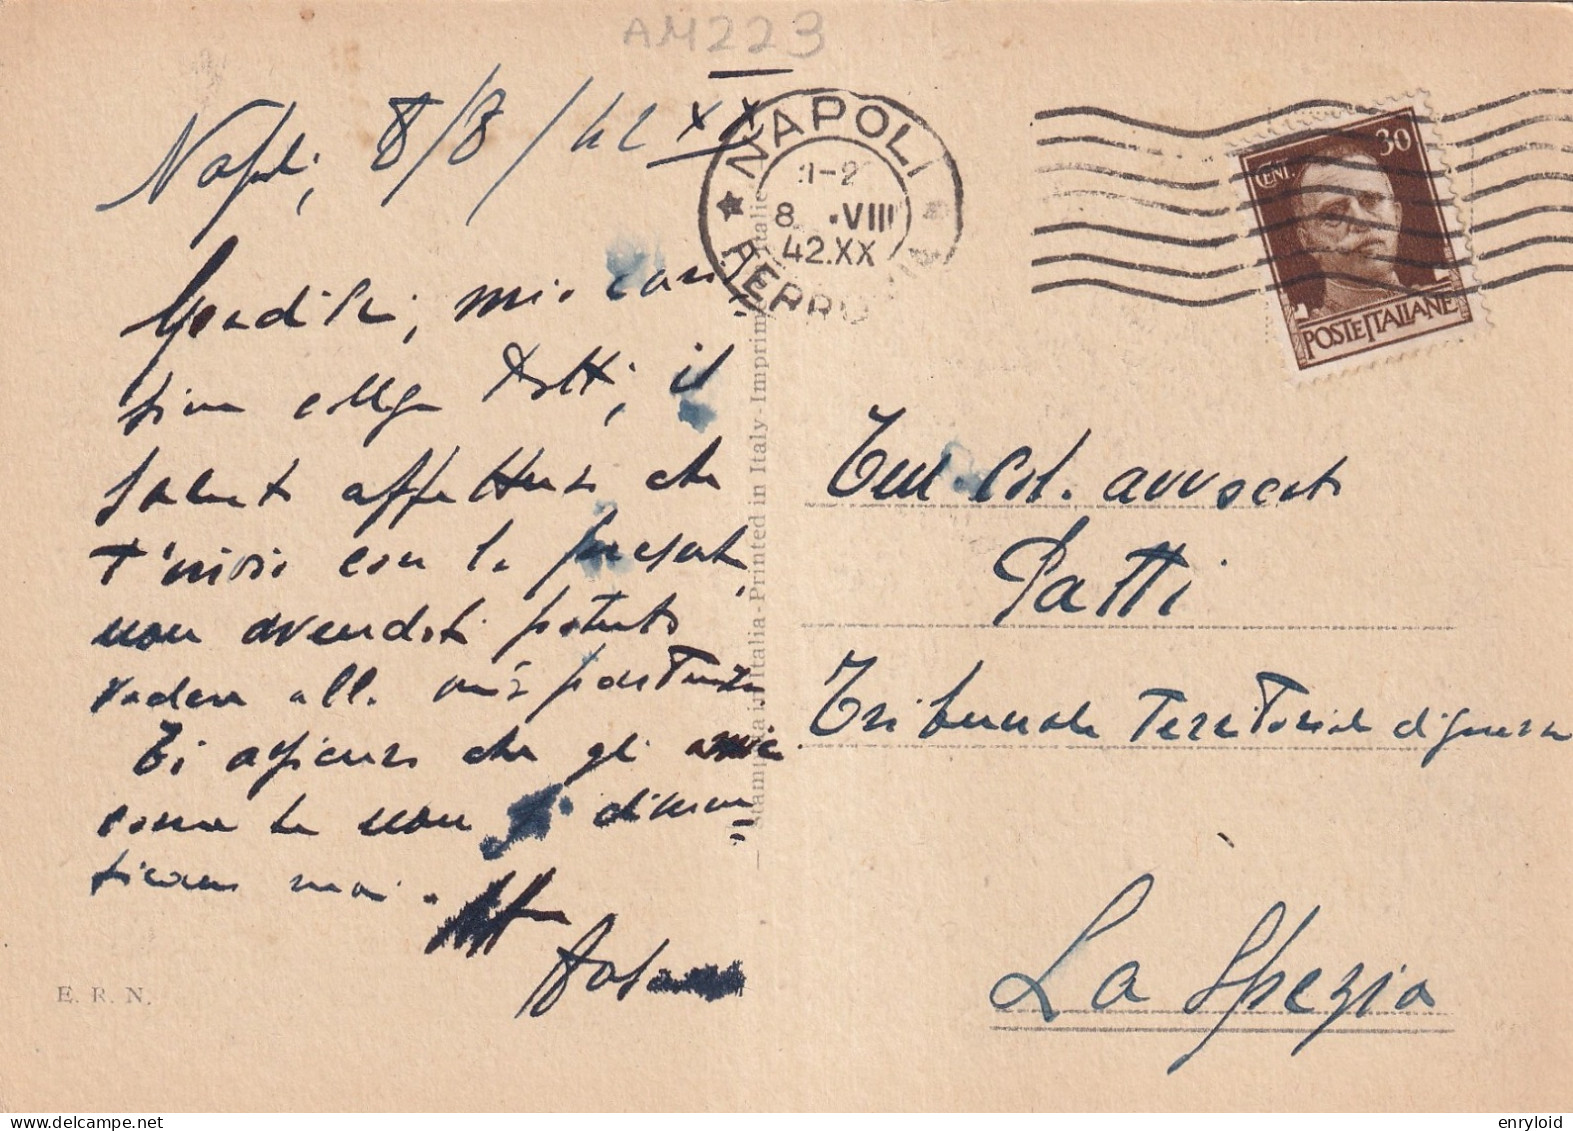 AM223
Napoli, 8/8/42 XX
NAPOLI
8 VIII
42.XX
FERRO
CENT. 30
POSTE ITALIANE
Gradisci, mio caris
simo collega Patti, il
saluto affettuoso che
t'invio con la presente,
non avendoti potuto
vedere alla mia partenza
Ti assicuro che gli amici
come te non si dimen
ticano mai.
E. R. N.
Stampata in Italia - Printed in Italy - Imprimé en Italie
Ten. Col. avvocato
Patti
Tribunale Territoriale di guerra
La Spezia
enryloid